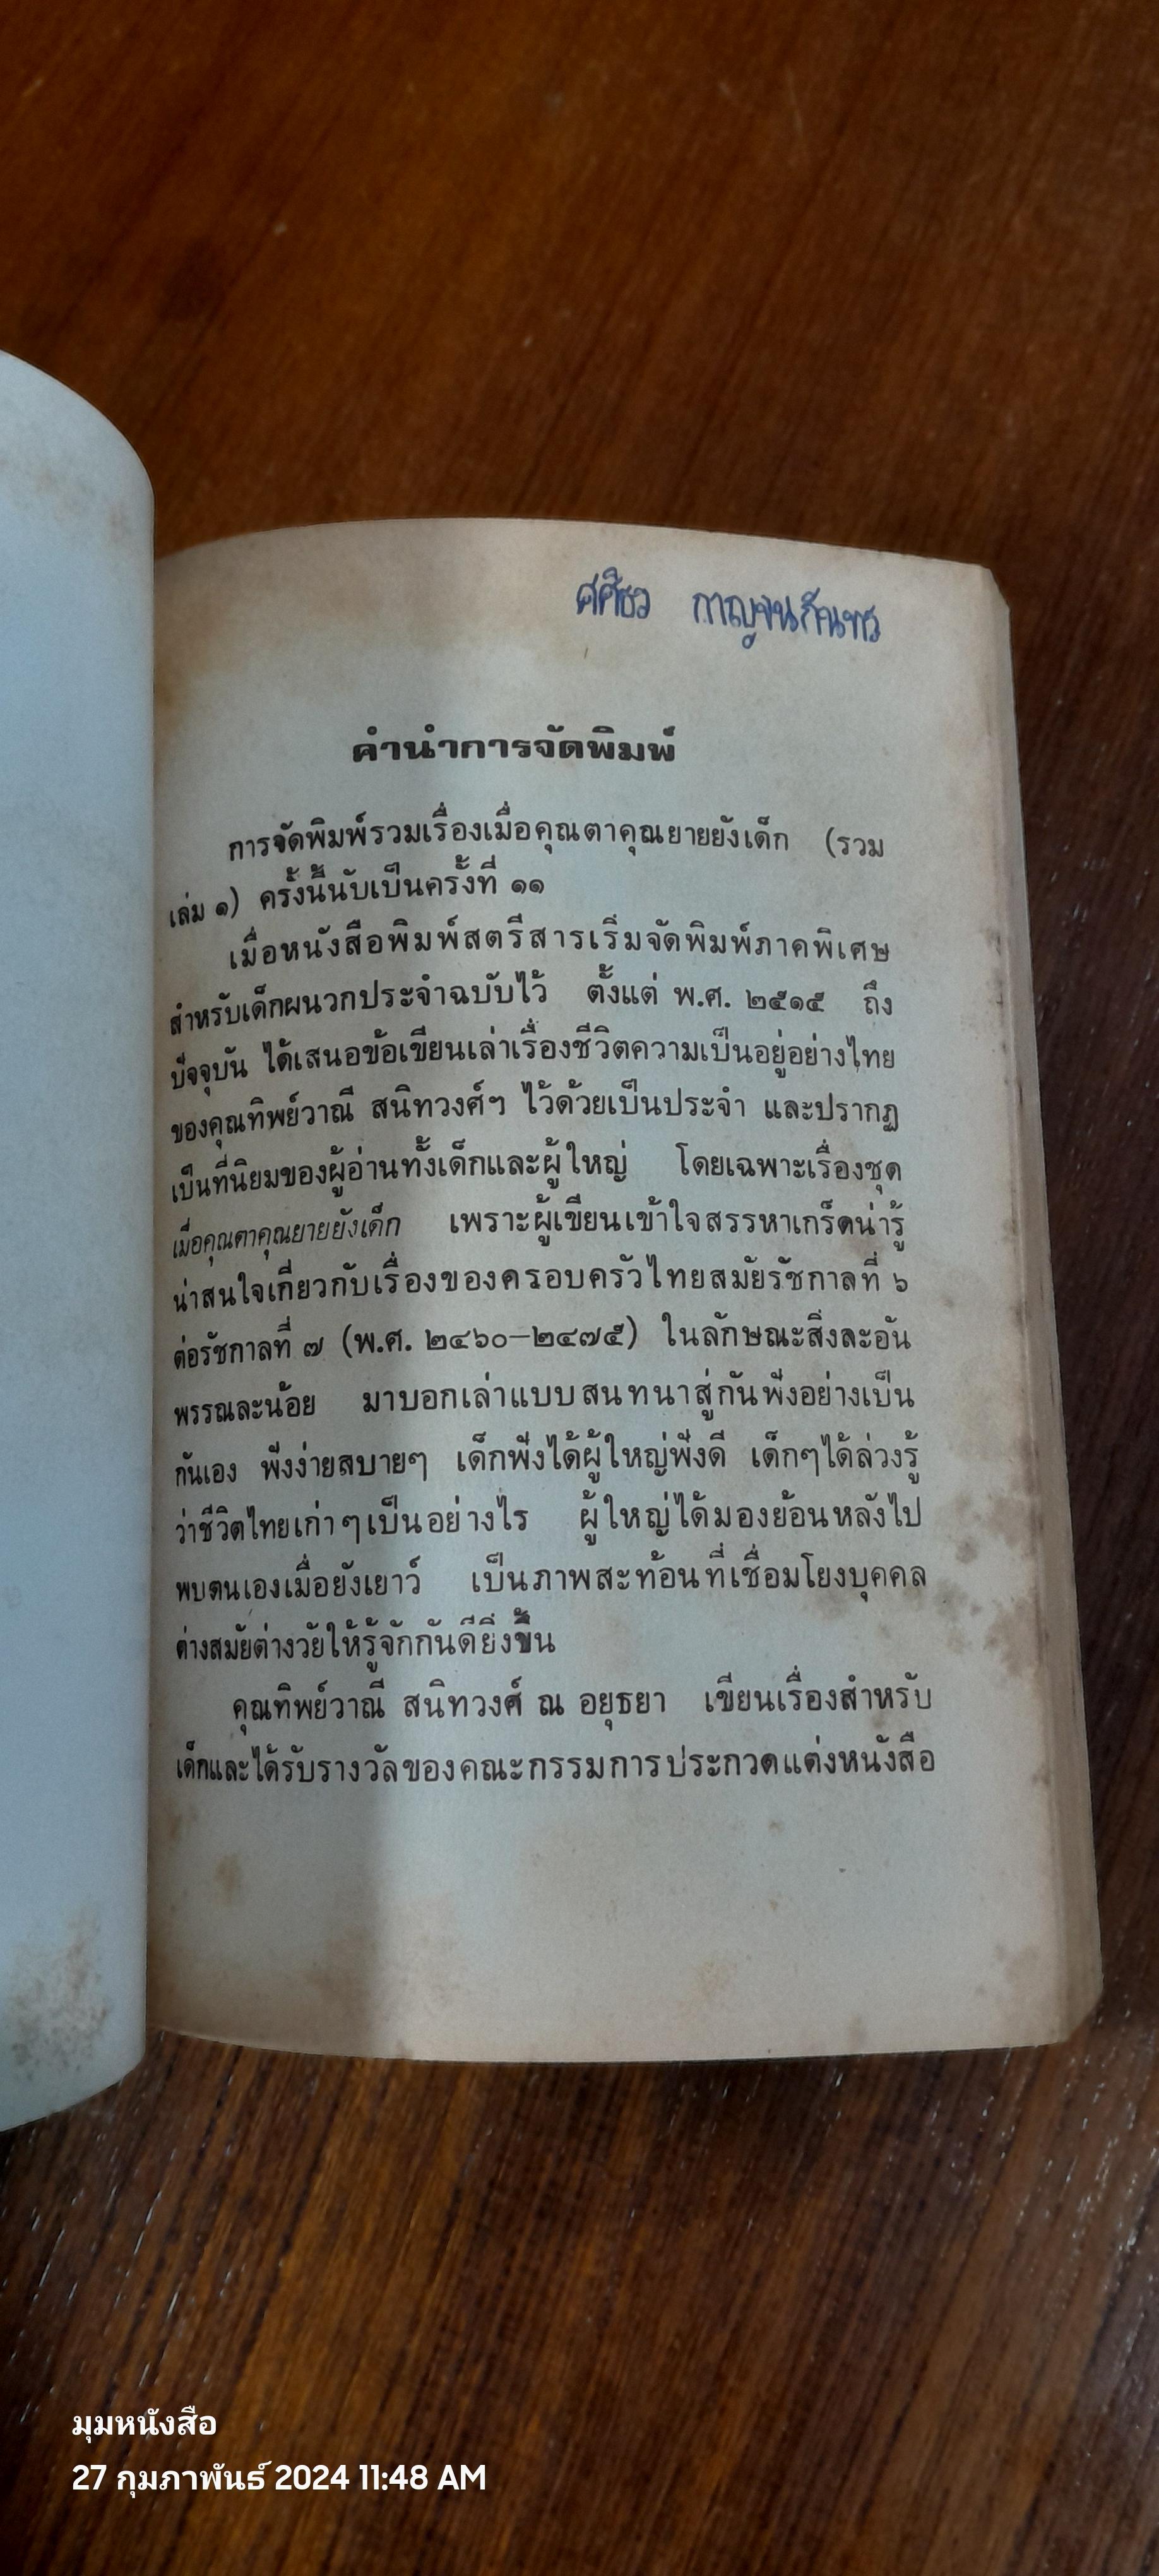 ศศิธว กาญจนกันทร
คำนำการจัดพิมพ์
การจัดพิมพ์รวมเรื่องเมื่อคุณตาคุณยายยังเด็ก (รวม
เล่ม ๑) ครั้งนี้นับเป็นครั้งที่ ๑๑
เมื่อหนังสือพิมพ์สตรีสารเริ่มจัดพิมพ์ภาคพิเศษ
สำหรับเด็กผนวกประจำฉบับไว้ ตั้งแต่ พ.ศ. ๒๕๑๕ ถึง
ปัจจุบัน ได้เสนอข้อเขียนเล่าเรื่องชีวิตความเป็นอยู่อย่างไทย
ของคุณทิพย์วาณี สนิทวงศ์ฯ ไว้ด้วยเป็นประจำ และปรากฏ
เป็นที่นิยมของผู้อ่านทั้งเด็กและผู้ใหญ่ โดยเฉพาะเรื่องชุด
เมื่อคุณตาคุณยายยังเด็ก เพราะผู้เขียนเข้าใจสรรหาเกร็ดน่ารู้
น่าสนใจเกี่ยวกับเรื่องของครอบครัวไทยสมัยรัชกาลที่ ๖
ต่อรัชกาลที่ ๗ (พ.ศ. ๒๔๖๐–๒๔๗๕) ในลักษณะสิ่งละอัน
พรรณละน้อย มาบอกเล่าแบบสนทนาสู่กันฟังอย่างเป็น
กันเอง ฟังง่ายสบายๆ เด็กฟังได้ผู้ใหญ่ฟังดี เด็กๆได้ล่วงรู้
ว่าชีวิตไทยเก่าๆเป็นอย่างไร ผู้ใหญ่ได้มองย้อนหลังไป
พบตนเองเมื่อยังเยาว์ เป็นภาพสะท้อนที่เชื่อมโยงบุคคล
ต่างสมัยต่างวัยให้รู้จักกันดียิ่งขึ้น
คุณทิพย์วาณี สนิทวงศ์ ณ อยุธยา เขียนเรื่องสำหรับ
เด็กและได้รับรางวัลของคณะกรรมการประกวดแต่งหนังสือ
มุมหนังสือ
27 กุมภาพันธ์ 2024 11:48 AM